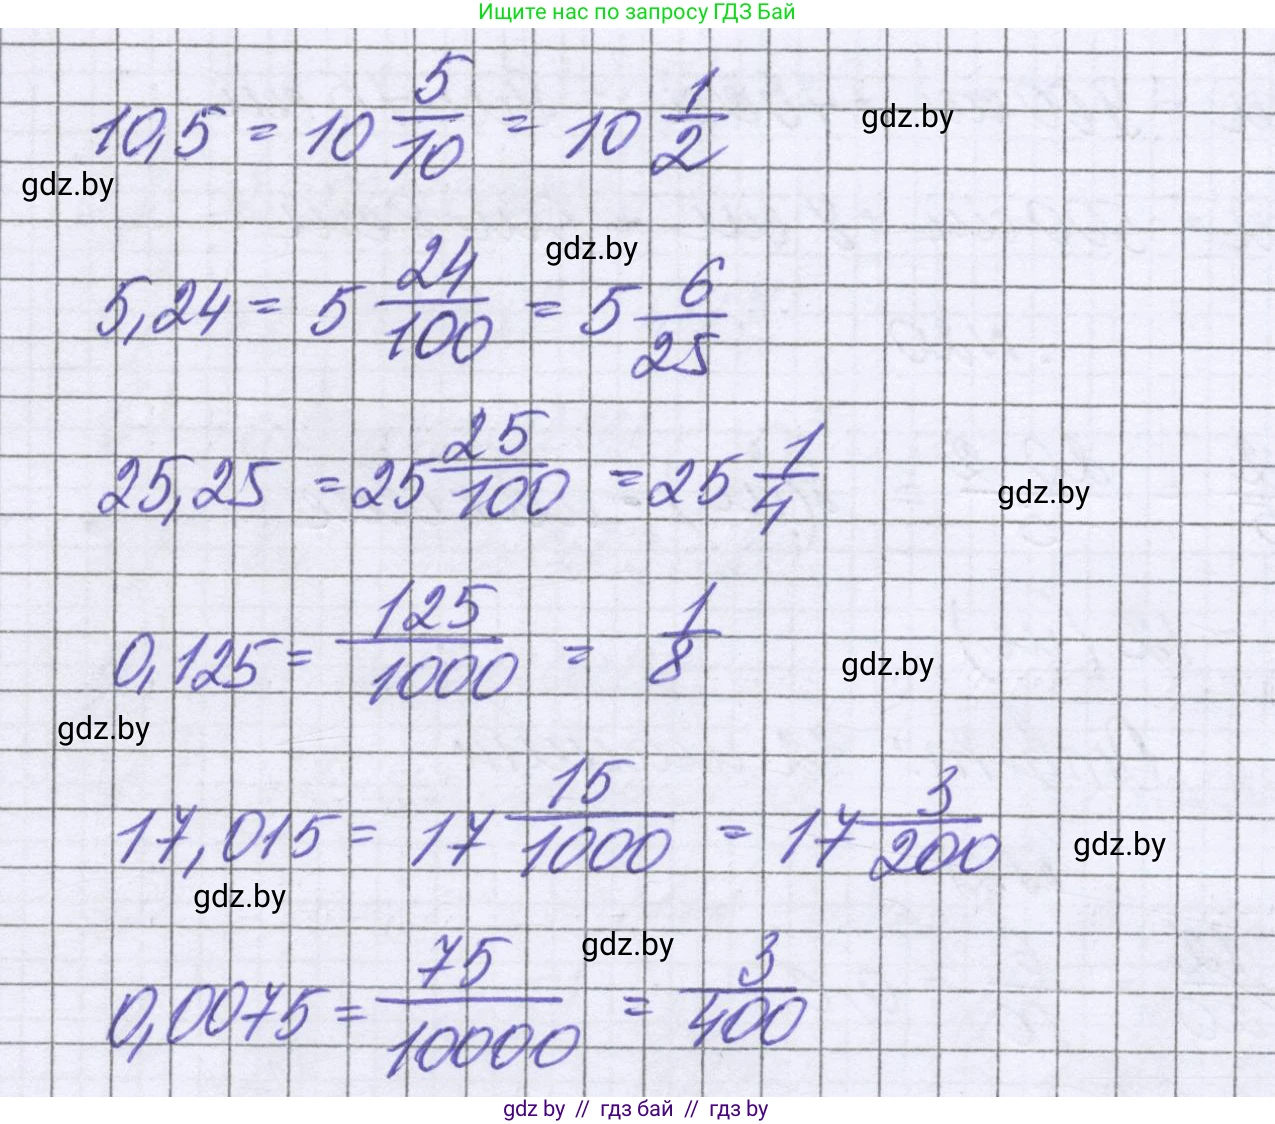 Ищите нас по запросу ГДЗ Бай
10,5 = 10 5/10 = 10 1/2
gdz.by
gdz.by
gdz.by
5,24 = 5 24/100 = 5 6/25
25,25 = 25 25/100 = 25 1/4
gdz.by
0,125 = 125/1000 = 1/8
gdz.by
gdz.by
17,015 = 17 15/1000 = 17 3/200
gdz.by
gdz.by
gdz.by
0,0075 = 75/10000 = 3/400
gdz by // гдз бай // гдз by